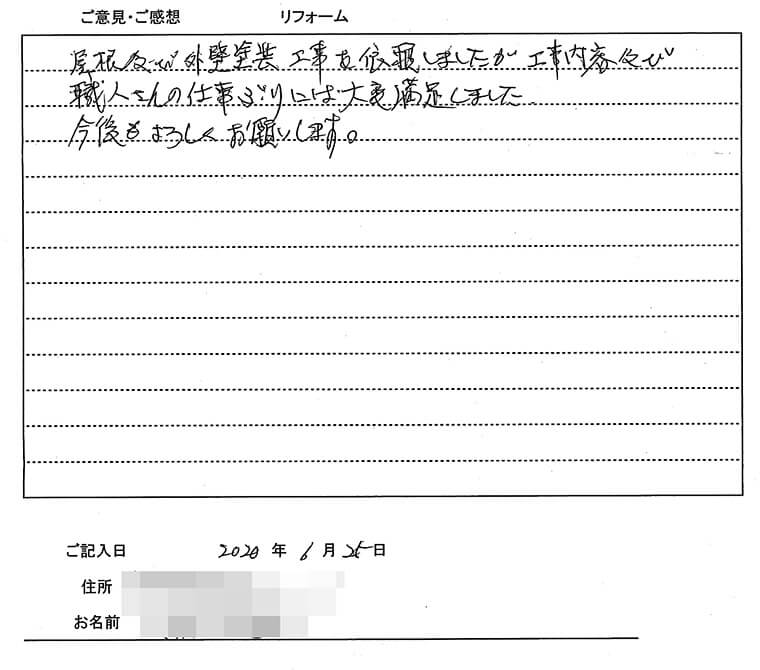 ご意見・ご感想 リフォーム
屋根及び外壁塗装工事を依頼しましたが工事内容及び
職人さんの仕事ぶりには大変満足しました
今後もよろしくお願いします。
ご記入日 2020 年 6 月 25 日
住所
お名前